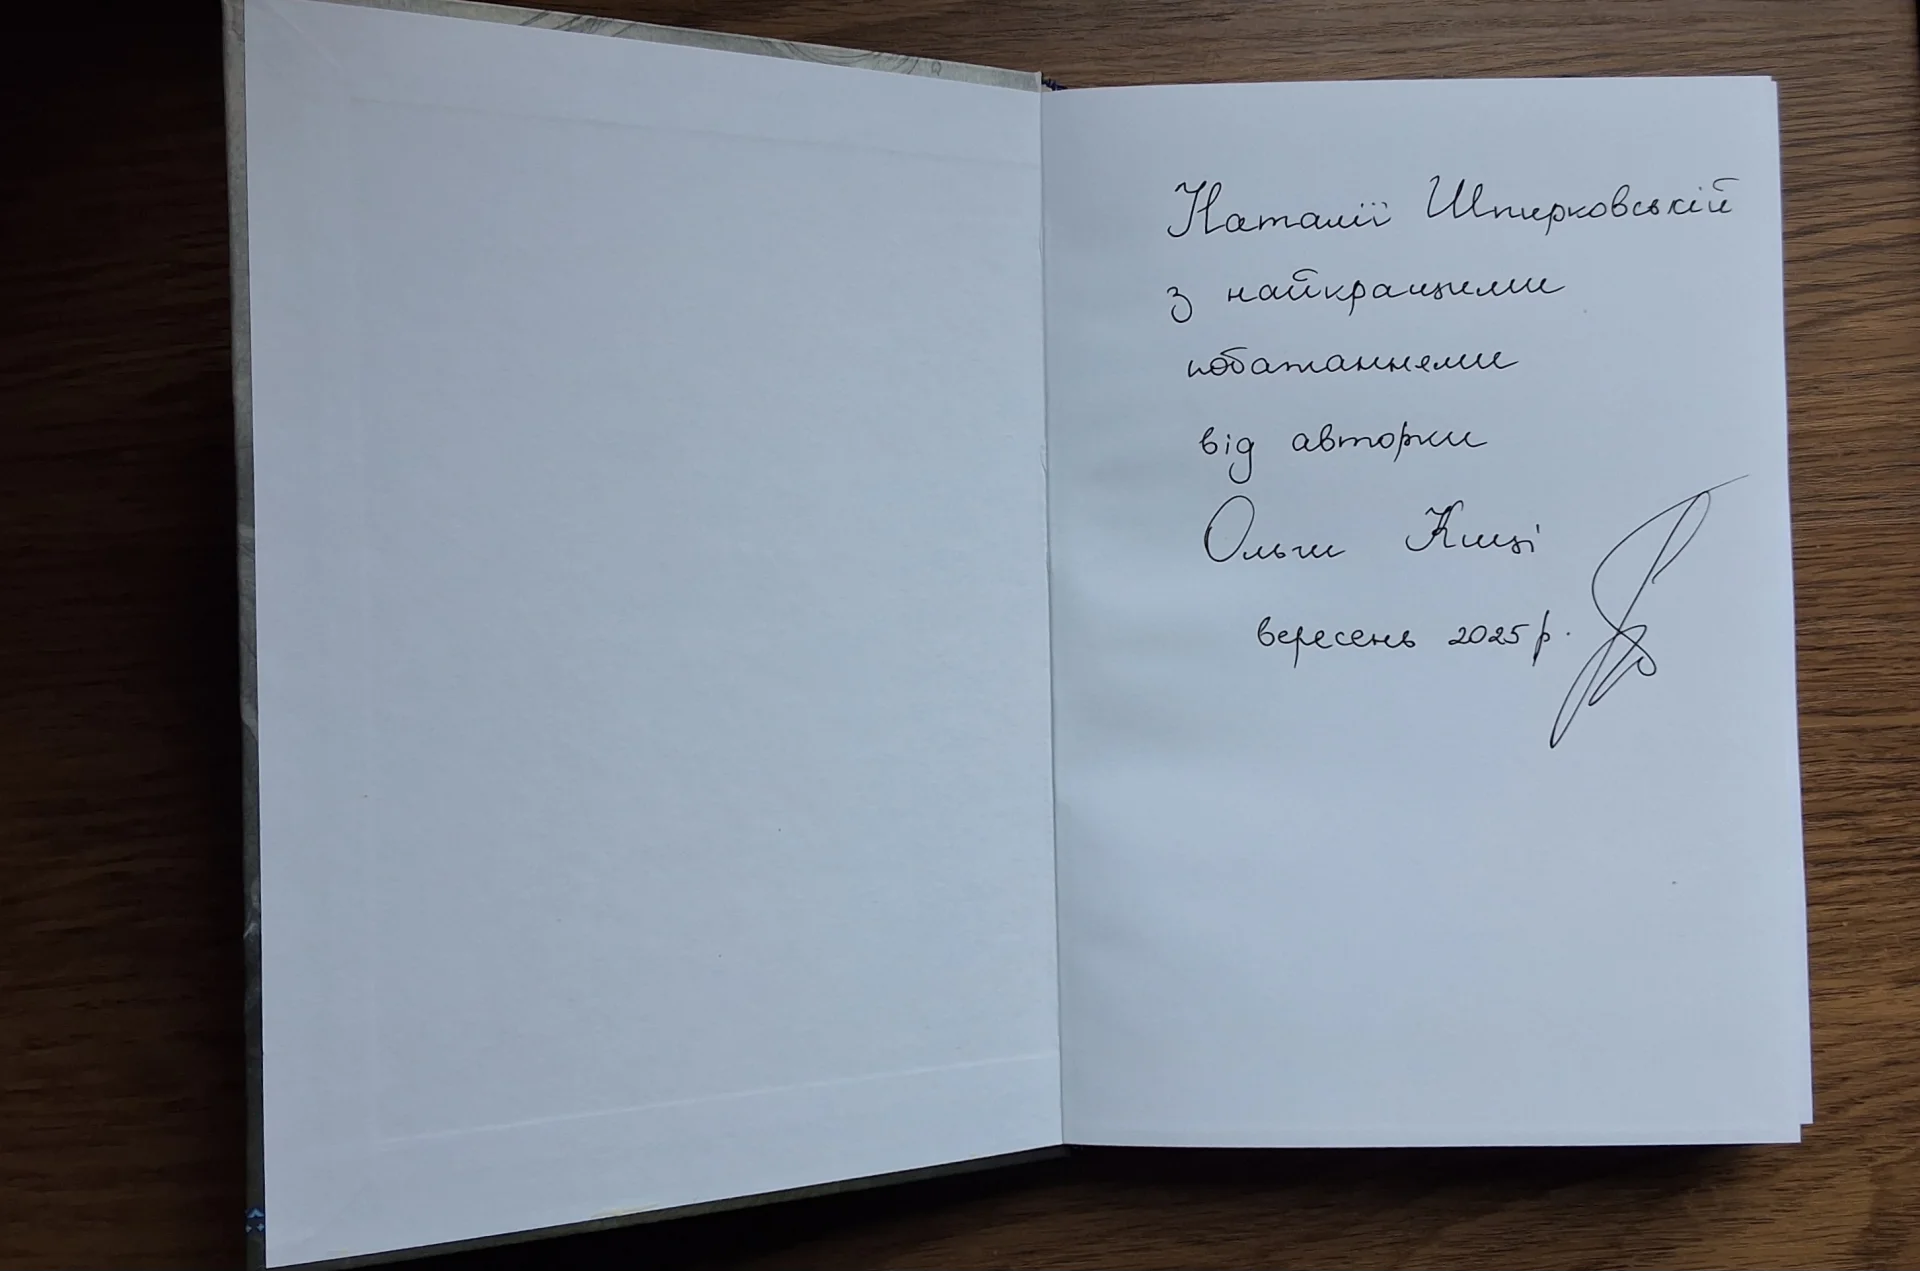 Наталії Шпирковській
з найкращими
побажаннями
від авторки
Ольги Киці
вересень 2025 р.